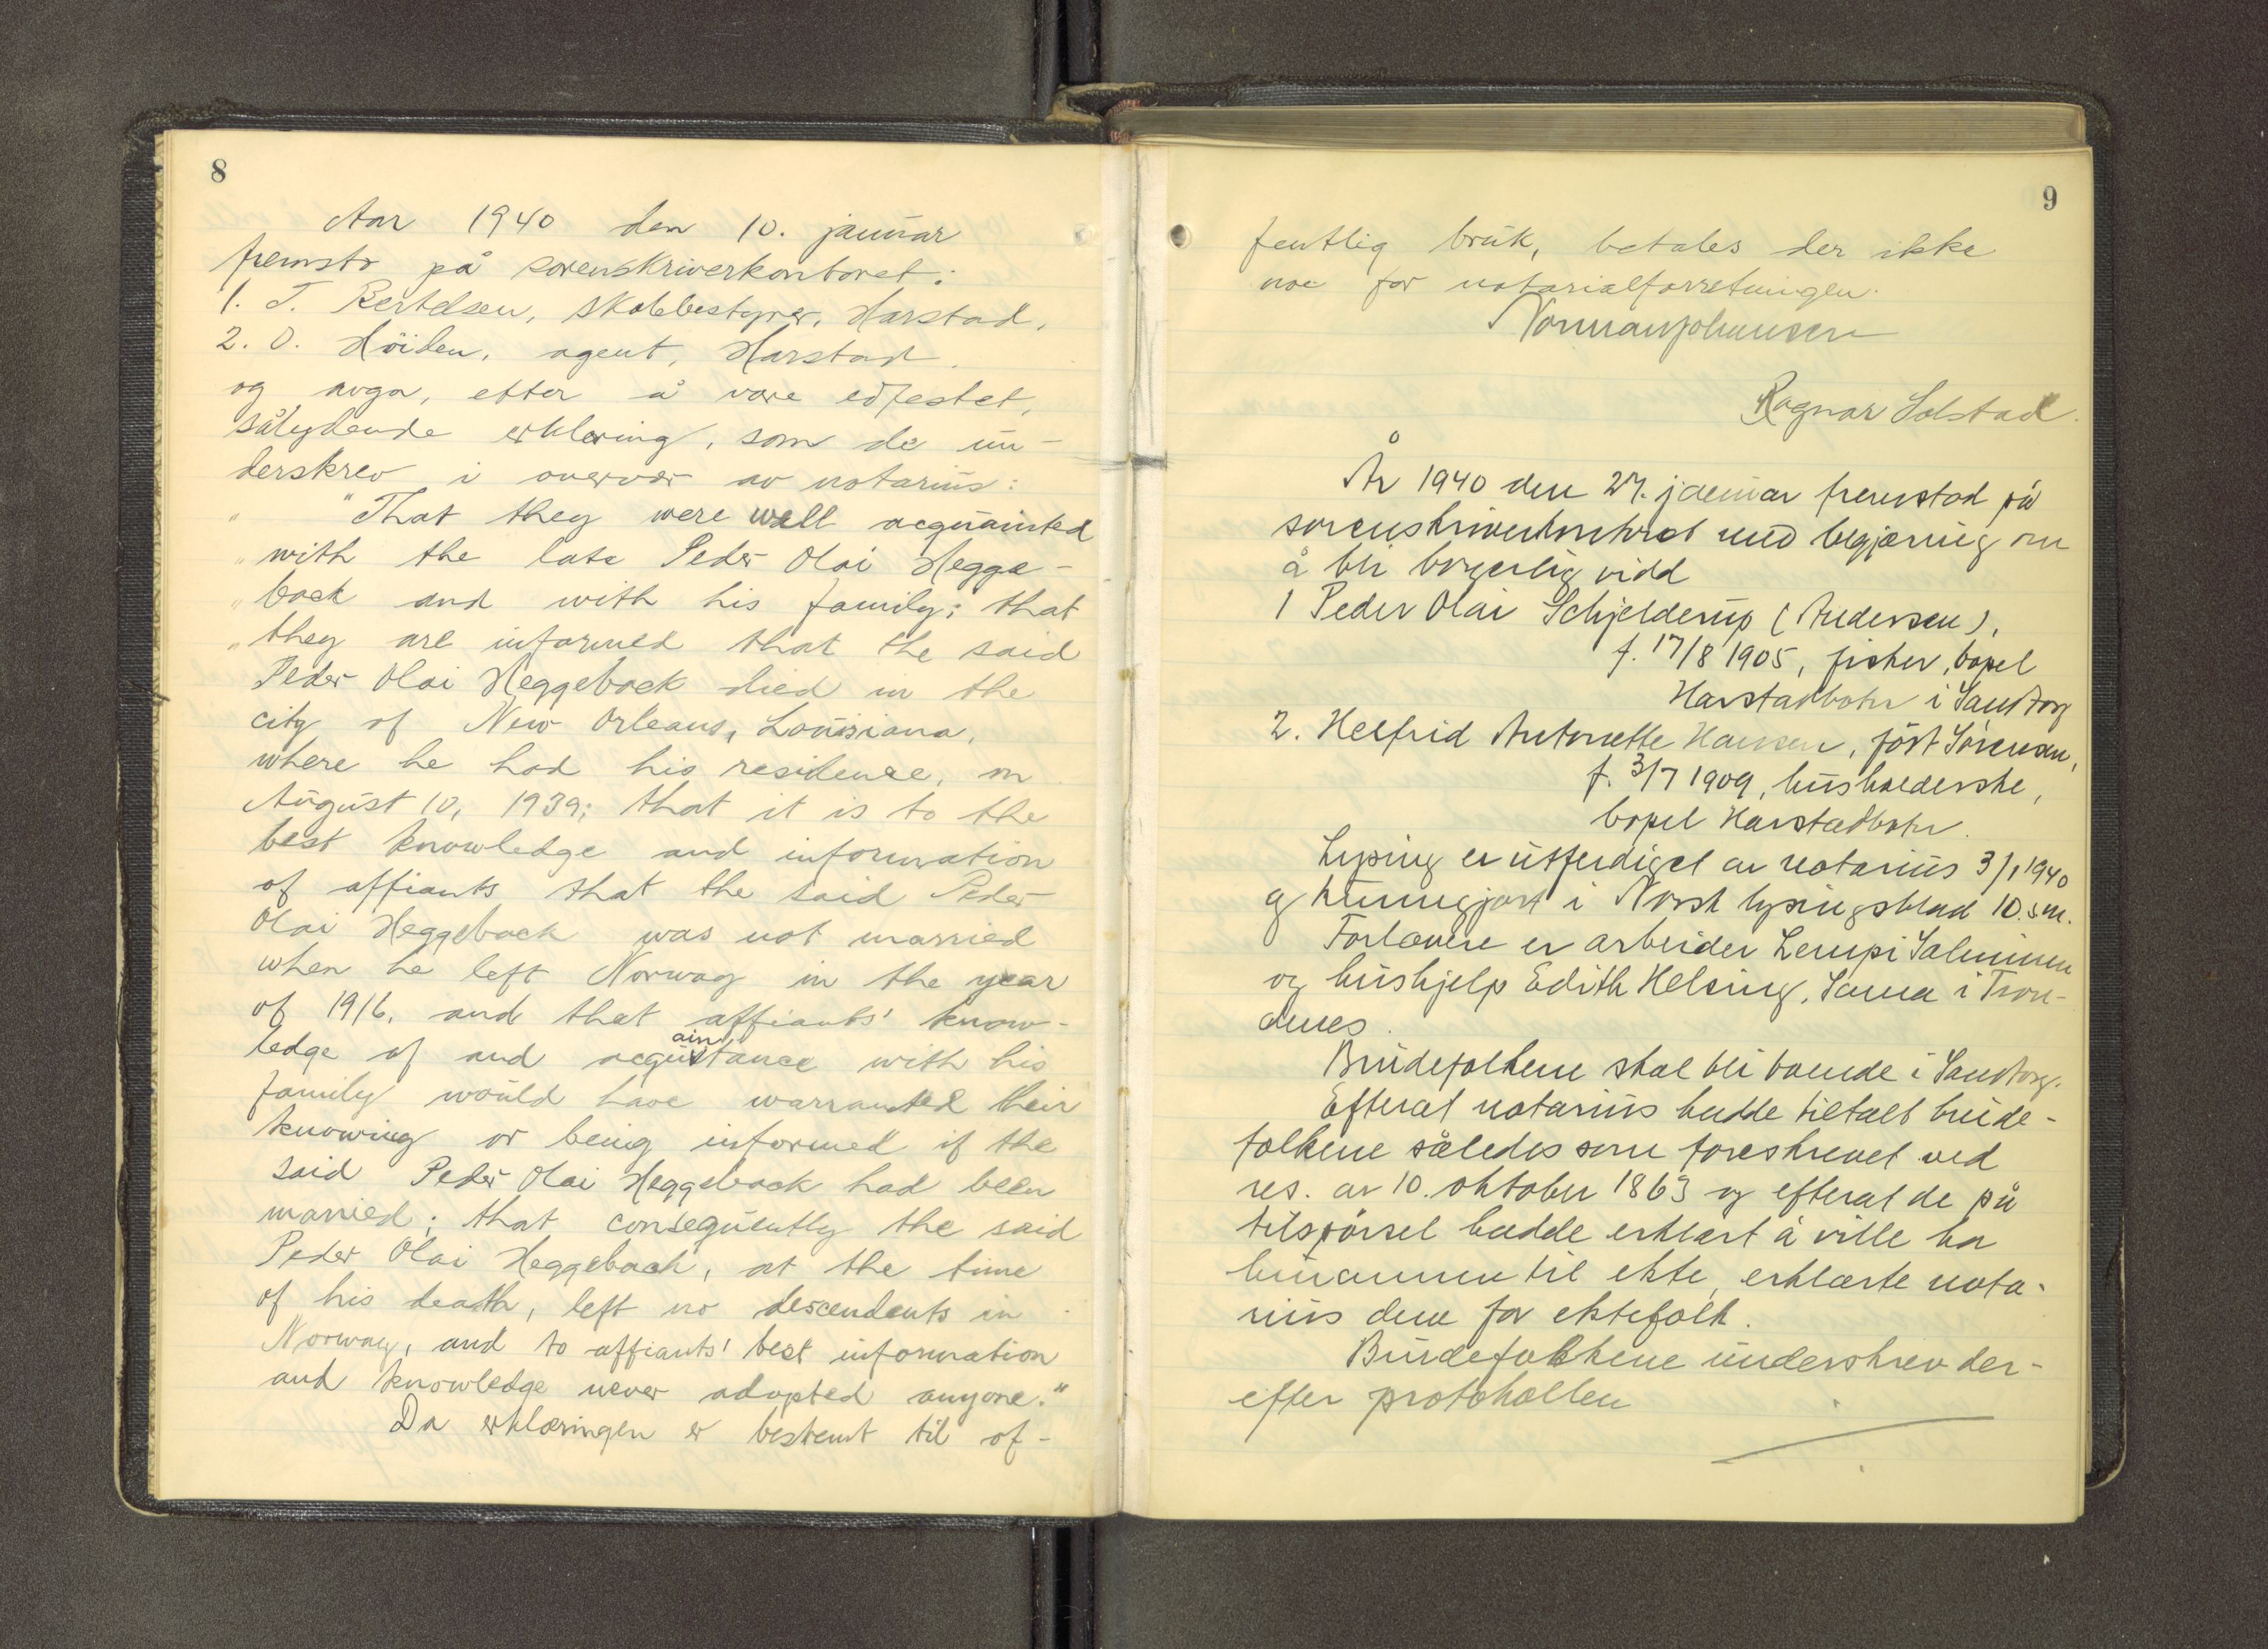 8
Aar 1940 den 10. januar
fremsto på sorenskriverkontoret:
1. T. Bertelsen, skolebestyrer, Harstad,
2. O. Höiden, agent, Harstad.
og avga, efter å være edfestet,
sålydende erklæring, som de un-
derskrev i overvær av notarius:
" "That they were well acquainted
" with the late Peder Olai Hegge-
" back and with his family; that
" they are informed that the said
Peder Olai Heggeback died in the
city of New Orleans, Louisiana,
where he had his residence, on
August 10, 1939; that it is to the
best knowledge and information
of affiants that the said Peder
Olai Heggeback was not married
when he left Norway in the year
of 1916, and that affiants' know-
ledge of and acquaintance with his
family would have warranted their
knowing or being informed if the
said Peder Olai Heggeback had been
married; that consequently the said
Peder Olai Heggeback, at the time
of his death, left no descendents in
Norway, and to affiants' best information
and knowledge never adopted anyone."
Da erklæringen er bestemt til of-
9
fentlig bruk, betales der ikke
noe for notarialforretningen.
Normann Johansen
Ragnar Solstad.
År 1940 den 27. januar fremstod på
sorenskriverkontoret med begjæring om
å bli borgerlig vidd
1 Peder Olai Schjelderup (Andersen),
f. 17/8 1905, fisker, bopel
Harstadbotn i Sandtorg
2. Helfrid Antonette Hansen, föst Sörensen,
f. 3/7 1909, husholderske,
bopel Harstadbotn.
Lysing er utferdiget av notarius 3/1 1940
og kunngjort i Norsk lysingsblad 10. s.m.
Forlovere er arbeider Lempi Salminen
og hushjelp Edith Helsing, Sama i Tron-
denes.
Brudefolkene skal bli boende i Sandtorg.
Efterat notarius hadde tiltalt brude-
folkene således som foreskrevet ved
res. av 10. oktober 1863 og efterat de på
tilspörsel hadde erklært å ville ha
hinannen til ekte, erklærte nota-
rius dem for ektefolk.
Brudefolkene underskrev der-
efter protokollen